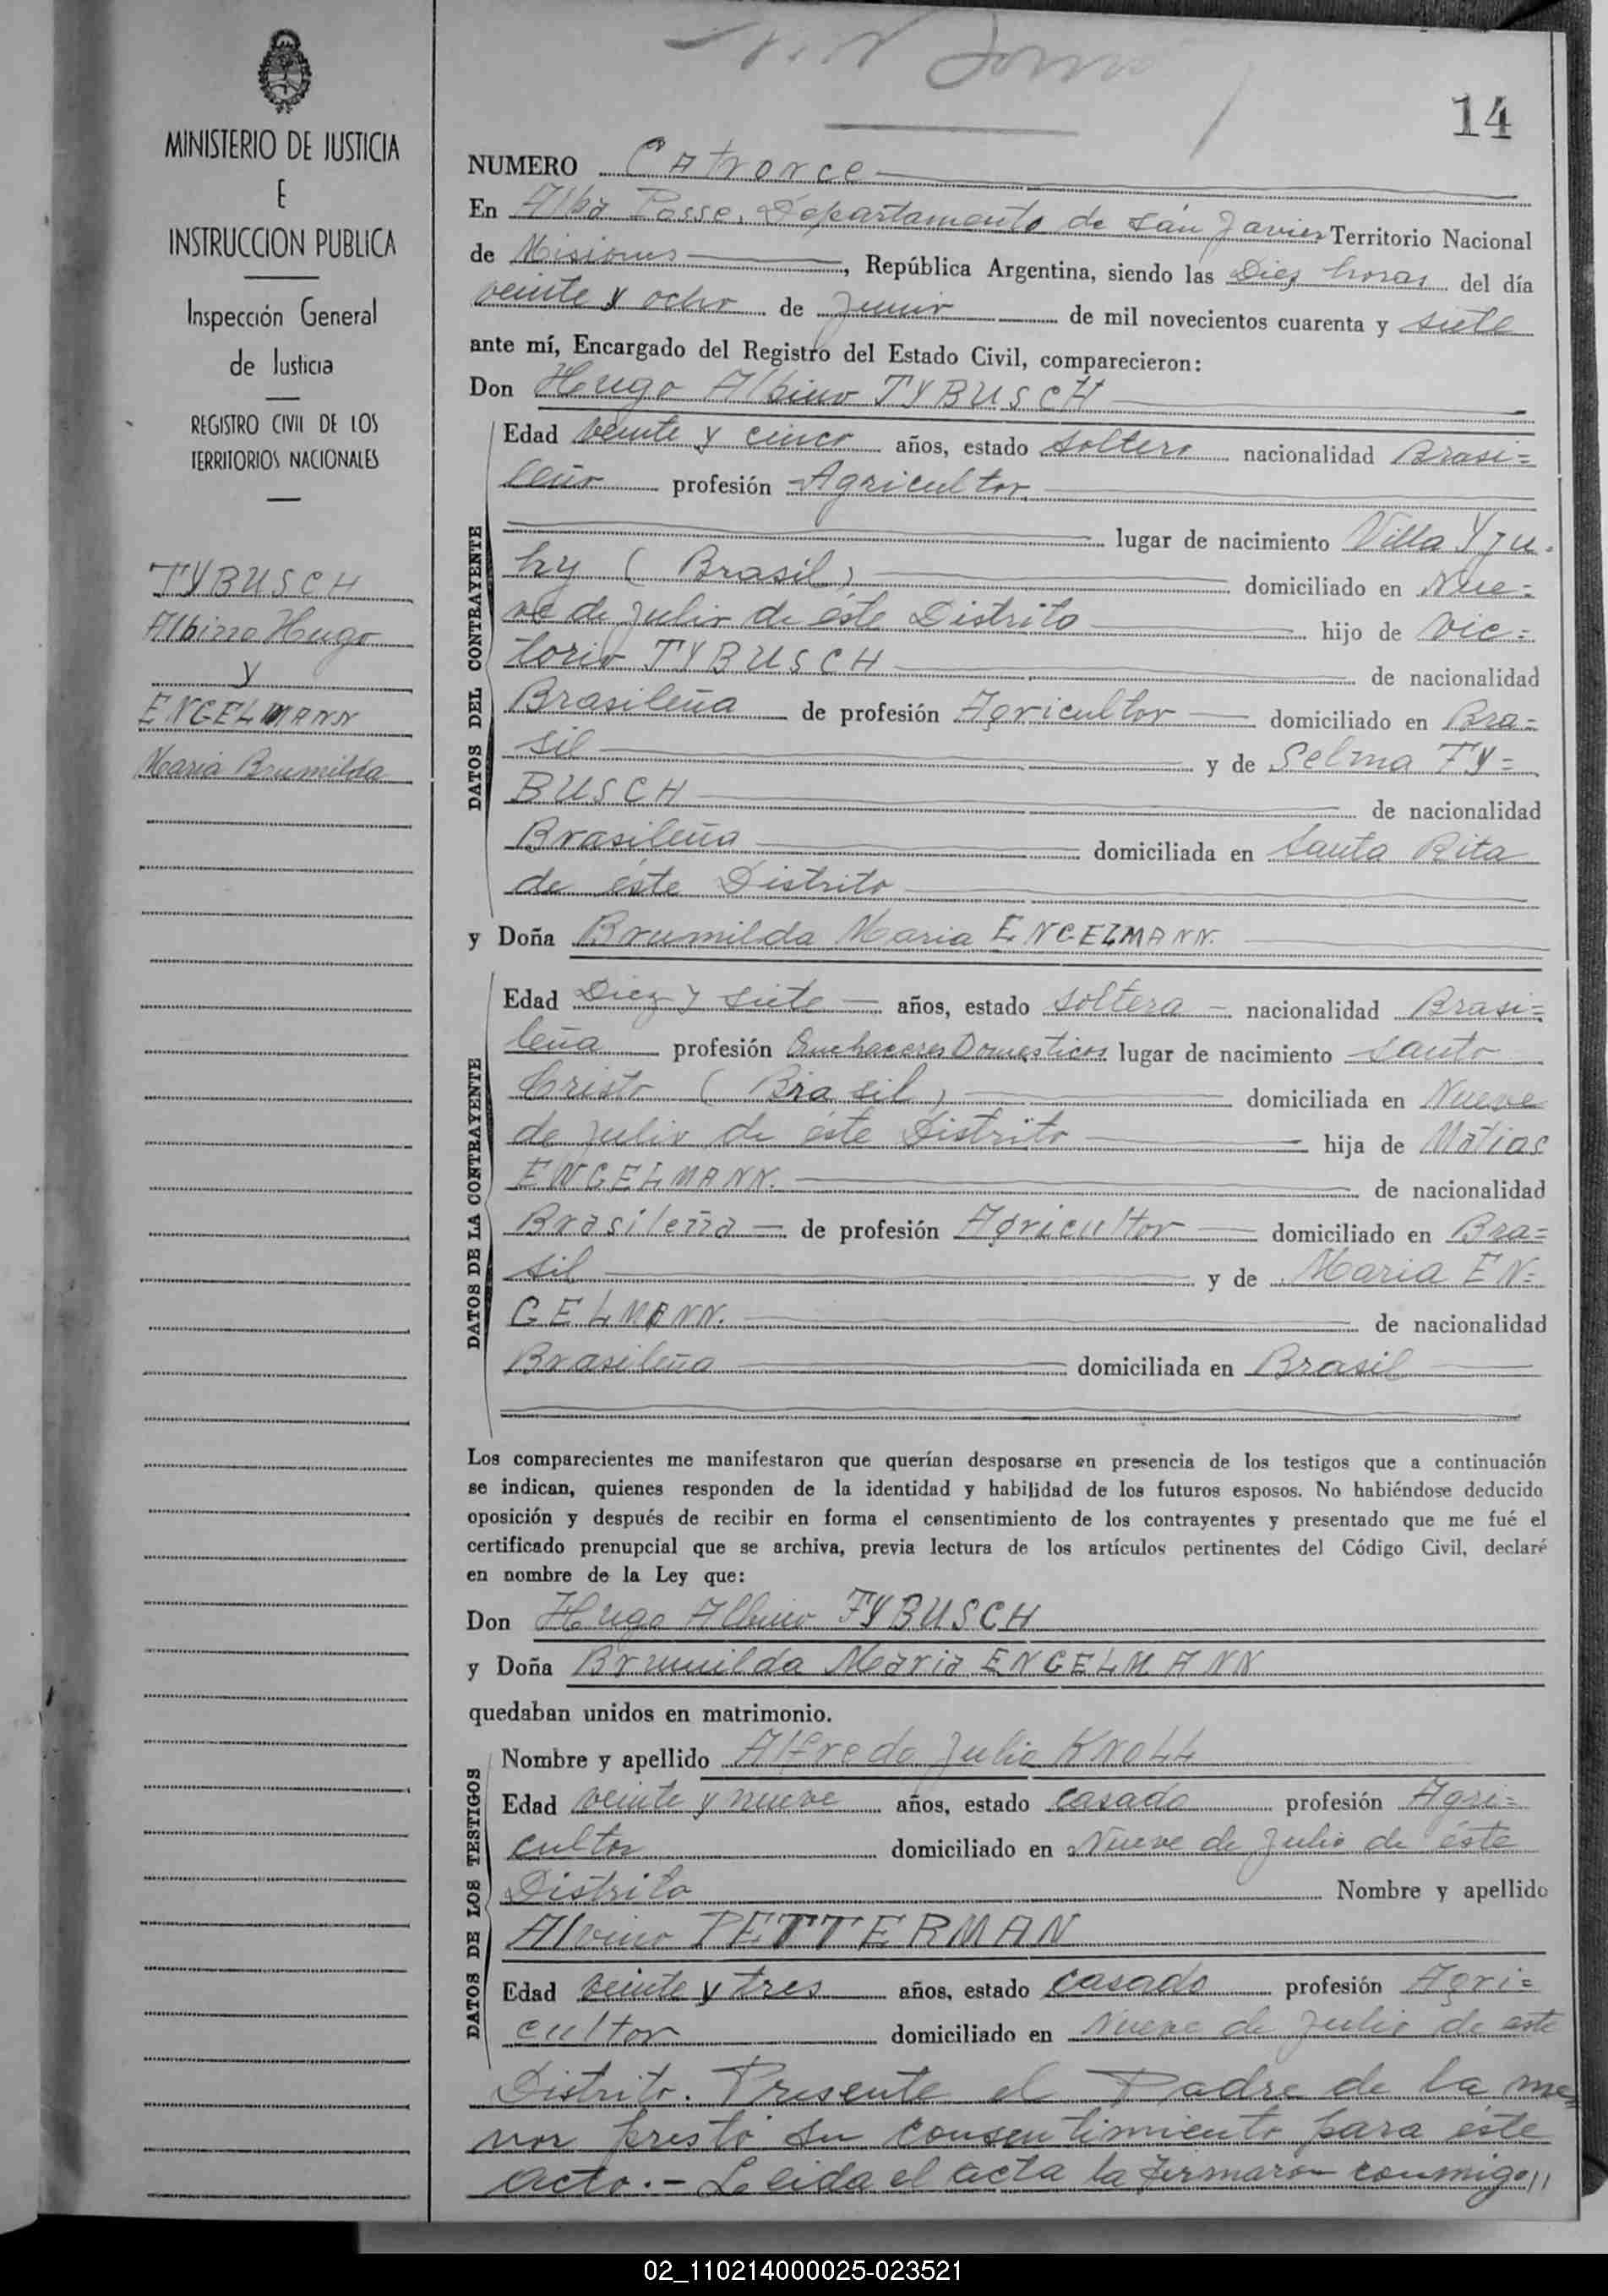 14
MINISTERIO DE JUSTICIA
E
INSTRUCCION PUBLICA
Inspección General
de Justicia
REGISTRO CIVIL DE LOS
TERRITORIOS NACIONALES
TYBUSCH
Albino Hugo
y
ENGELMANN
Maria Brumilda
NUMERO Catrorce
En Alba Posse, Departamento de San Javier Territorio Nacional
de Misiones, República Argentina, siendo las Diez horas del día
veinte y ocho de Junio de mil novecientos cuarenta y siete
ante mí, Encargado del Registro del Estado Civil, comparecieron:
Don Hugo Albino TYBUSCH
DATOS DEL CONTRAYENTE
Edad veinte y cinco años, estado soltero nacionalidad Brasi=
leño profesión Agricultor
lugar de nacimiento Villa Yju-
hy (Brasil) domiciliado en Nue=
ve de Julio de éste Distrito hijo de Vic=
torio TYBUSCH de nacionalidad
Brasileña de profesión Agricultor domiciliado en Bra=
sil y de Selma TY=
BUSCH de nacionalidad
Brasileña domiciliada en Santa Rita
de éste Distrito
y Doña Brumilda Maria ENGELMANN.
DATOS DE LA CONTRAYENTE
Edad Diez y siete años, estado soltera nacionalidad Brasi=
leña profesión Quehaceres Domesticos lugar de nacimiento Santo
Cristo (Brasil) domiciliada en Nueve
de Julio de éste Distrito hija de Matias
ENGELMANN. de nacionalidad
Brasileña de profesión Agricultor domiciliado en Bra=
sil y de Maria EN=
GELMANN. de nacionalidad
Brasileña domiciliada en Brasil
Los comparecientes me manifestaron que querían desposarse en presencia de los testigos que a continuación
se indican, quienes responden de la identidad y habilidad de los futuros esposos. No habiéndose deducido
oposición y después de recibir en forma el consentimiento de los contrayentes y presentado que me fué el
certificado prenupcial que se archiva, previa lectura de los artículos pertinentes del Código Civil, declaré
en nombre de la Ley que:
Don Hugo Albino TYBUSCH
y Doña Brumilda Maria ENGELMANN
quedaban unidos en matrimonio.
DATOS DE LOS TESTIGOS
Nombre y apellido Alfredo Julio KNOLL
Edad veinte y nueve años, estado casado profesión Agri=
cultor domiciliado en Nueve de Julio de éste
Distrito Nombre y apellido
Alvino PETTERMAN
Edad veinte y tres años, estado casado profesión Agri=
cultor domiciliado en Nueve de Julio de este
Distrito. Presente el Padre de la me=
nor prestó su consentimiento para éste
acto.- Leida el acta la firmaron conmigo//
02_110214000025-023521